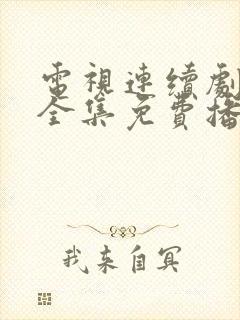 電視連續劇
全集免費播
我來自冥